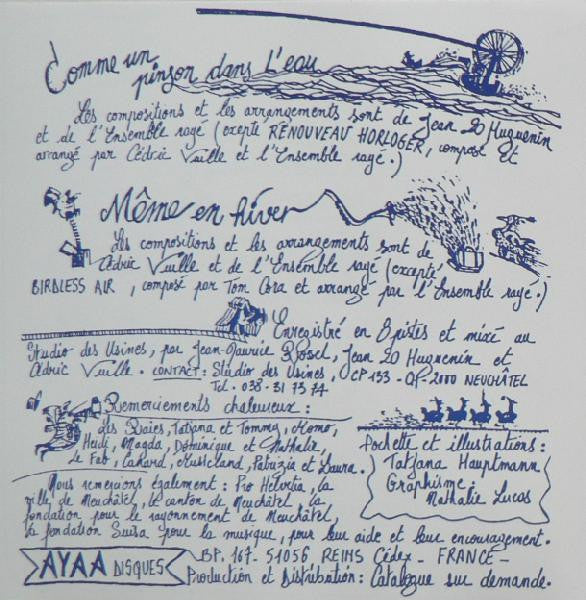 Comme un
pinson dans l'eau
Les compositions et les arrangements sont de Jean 20 Huguenin
et de l'Ensemble rayé (excepté RENOUVEAU HORLOGER, composé et
arrangé par Cédric Vuille et l'Ensemble rayé.)
Même en hiver
Les compositions et les arrangements sont de
Cédric Vuille et de l'Ensemble rayé (excepté
BIRDLESS AIR, composé par Tom Cora et arrangé par l'Ensemble rayé.)
Enregistré en 8 pistes et mixé au
Studio des Usines, par Jean-Maurice Rossel, Jean 20 Huguenin et
Cédric Vuille. CONTACT: Studio des Usines, CP 133 - CH-2000 NEUCHÂTEL
Tel. 038-31 73 74
Remerciements chaleureux:
Les Raies, Tatjana et Tommy, Momo,
Heidi, Magda, Dominique et Nathalie,
le Fab, Canard, Patrizia et Laura.
Pochette et illustrations:
Tatjana Hauptmann
Graphisme:
Nathalie Lucas
Nous remercions également: Pro Helvetia, la
ville de Neuchâtel, le canton de Neuchâtel, la
fondation pour le rayonnement de Neuchâtel,
la fondation Suisa pour la musique, pour leur aide et leur encouragement.
AYAA DISQUES
BP. 167-51056 REIMS Cédex - FRANCE -
Production et Distribution: Catalogue sur demande.